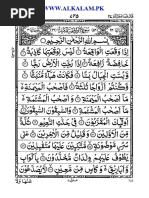 WWW.ALKALAM.PK
٤٣٥
بِسْمِ اللهِ الرَّحْمٰنِ الرَّحِيْمِ
اِذَا وَقَعَتِ الْوَاقِعَةُ لَيْسَ لِوَقْعَتِهَا كَاذِبَةٌ خَافِضَةٌ
رَّافِعَةٌ اِذَا رُجَّتِ الْاَرْضُ رَجًّا وَّبُسَّتِ الْجِبَالُ بَسًّا
فَكَانَتْ هَبَآءً مُّنْۢبَثًّا وَّكُنْتُمْ اَزْوَاجًا ثَلٰثَةً فَاَصْحٰبُ
الْمَيْمَنَةِ مَآ اَصْحٰبُ الْمَيْمَنَةِ وَاَصْحٰبُ الْمَشْـَٔمَةِ مَآ
اَصْحٰبُ الْمَشْـَٔمَةِ وَالسّٰبِقُوْنَ السّٰبِقُوْنَ اُولٰٓئِكَ الْمُقَرَّبُوْنَ
فِيْ جَنّٰتِ النَّعِيْمِ ثُلَّةٌ مِّنَ الْاَوَّلِيْنَ وَقَلِيْلٌ مِّنَ الْاٰخِرِيْنَ
عَلٰى سُرُرٍ مَّوْضُوْنَةٍ مُّتَّكِـِٕيْنَ عَلَيْهَا مُتَقٰبِلِيْنَ يَطُوْفُ
عَلَيْهِمْ وِلْدَانٌ مُّخَلَّدُوْنَ بِاَكْوَابٍ وَّاَبَارِيْقَ